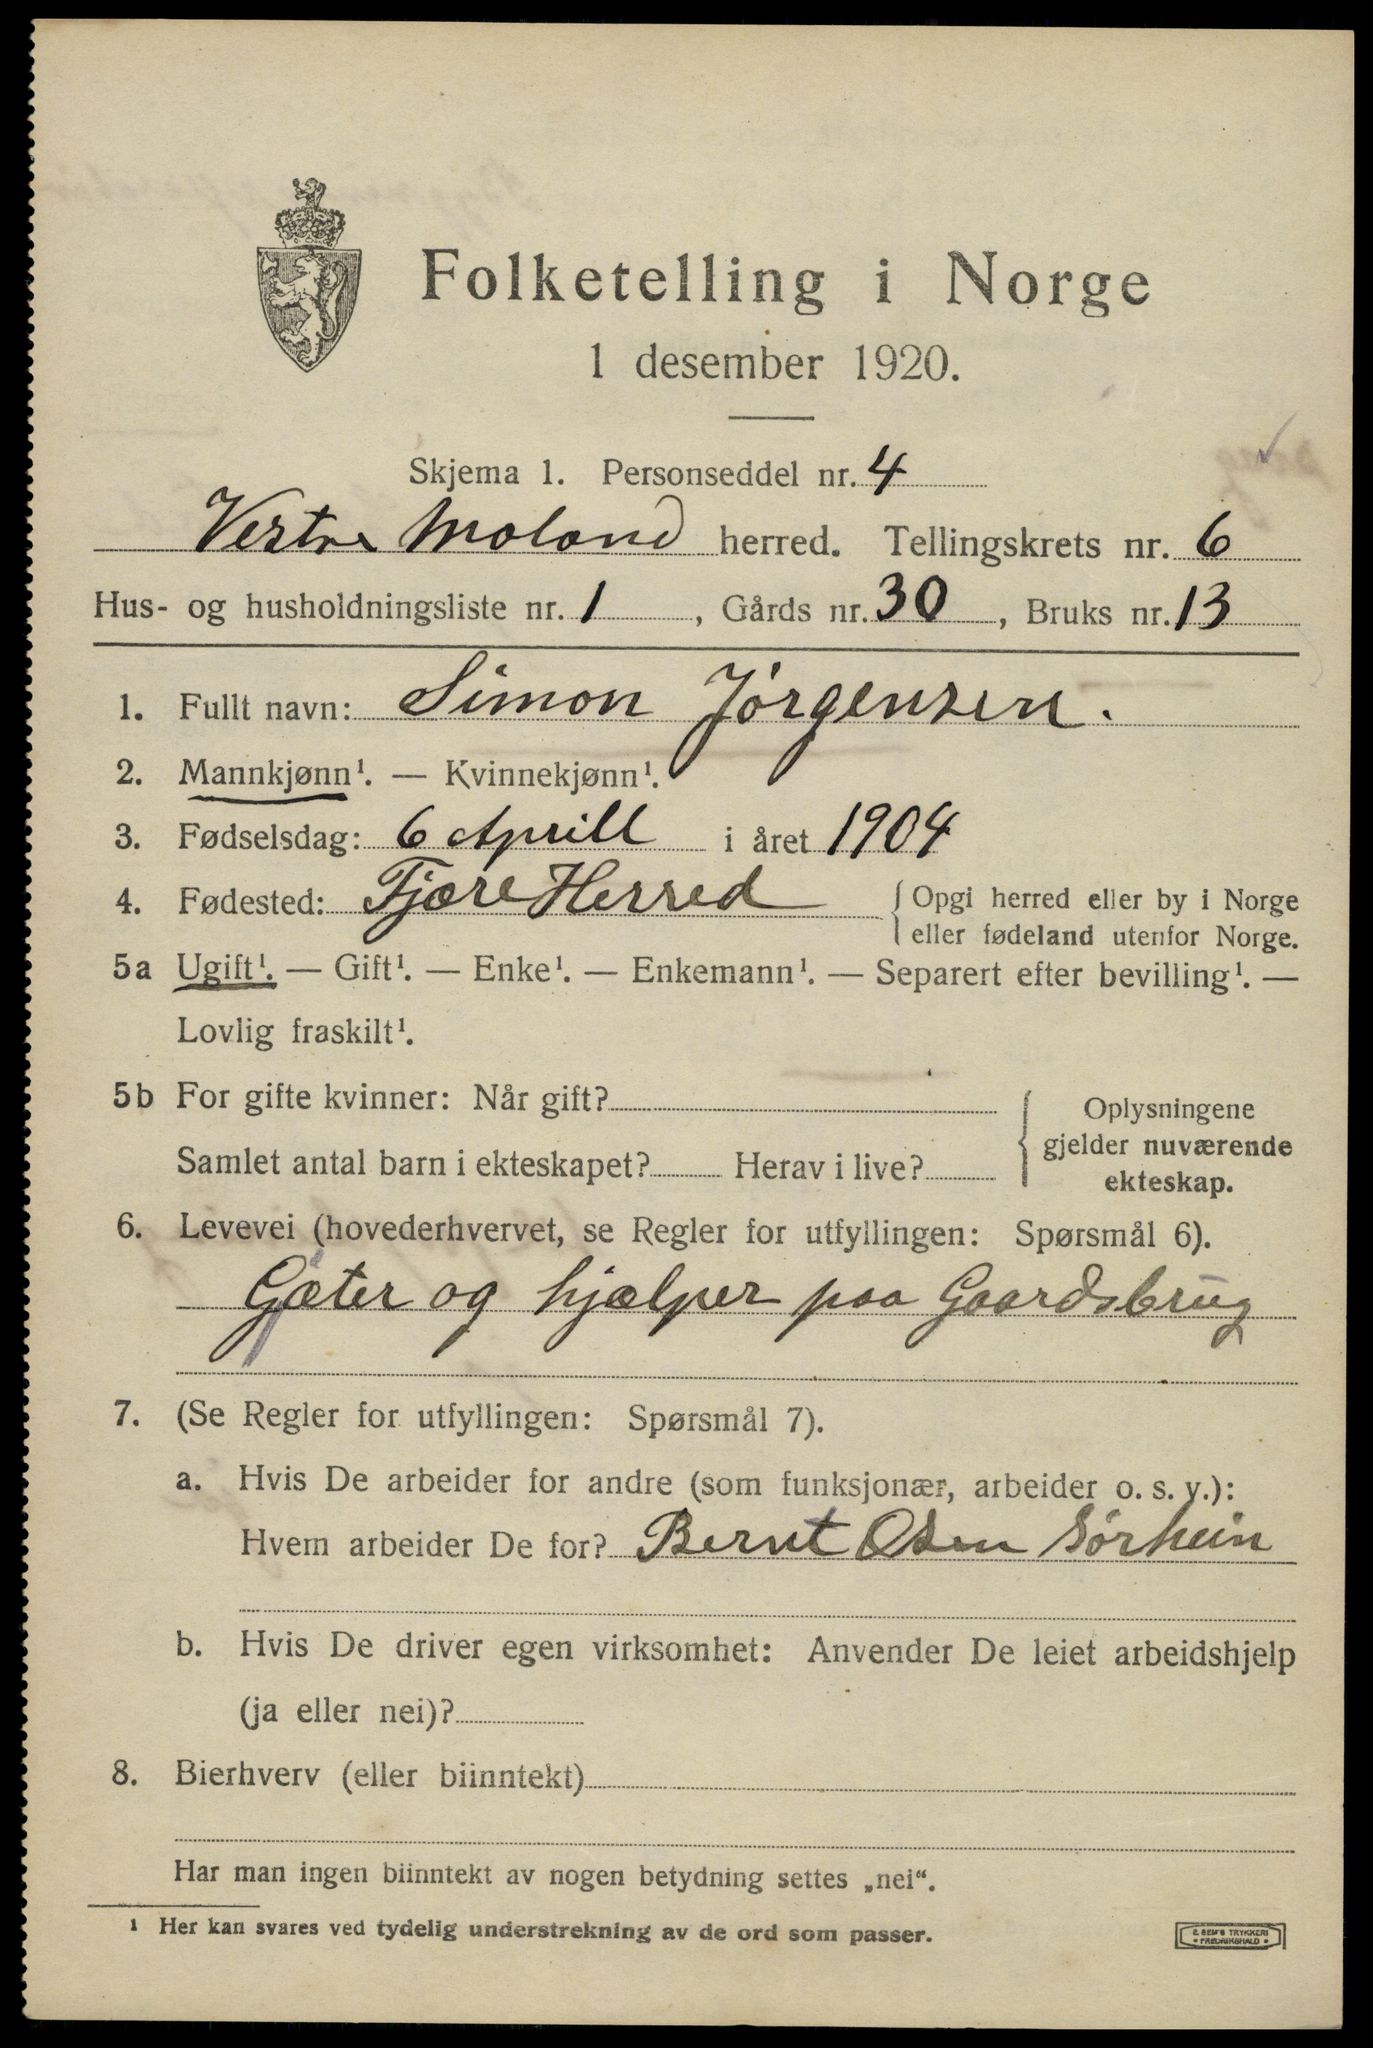 Folketelling i Norge
1 desember 1920.
Skjema 1. Personseddel nr. 4
Vestre Moland herred. Tellingskrets nr. 6
Hus- og husholdningsliste nr. 1, Gårds nr. 30, Bruks nr. 13
1. Fullt navn: Simon Jørgensen.
2. Mannkjønn¹. — Kvinnekjønn¹.
3. Fødselsdag: 6 Aprill i året 1904
4. Fødested: Fjære Herred { Opgi herred eller by i Norge
eller fødeland utenfor Norge.
5a Ugift¹. — Gift¹. — Enke¹. — Enkemann¹. — Separert efter bevilling¹. —
Lovlig fraskilt¹.
5b For gifte kvinner: Når gift?
Samlet antal barn i ekteskapet? Herav i live?
{ Oplysningene
gjelder nuværende
ekteskap.
6. Levevei (hovederhvervet, se Regler for utfyllingen: Spørsmål 6).
Gjæter og hjælper paa Gaardsbrug
7. (Se Regler for utfyllingen: Spørsmål 7).
a. Hvis De arbeider for andre (som funksjonær, arbeider o. s. v.):
Hvem arbeider De for? Bernt Olsen Sørheim
b. Hvis De driver egen virksomhet: Anvender De leiet arbeidshjelp
(ja eller nei)?
8. Bierhverv (eller biinntekt)
Har man ingen biinntekt av nogen betydning settes „nei“.
¹ Her kan svares ved tydelig understrekning av de ord som passer.
E. SEM'S TRYKKERI
FREDRIKSHALD